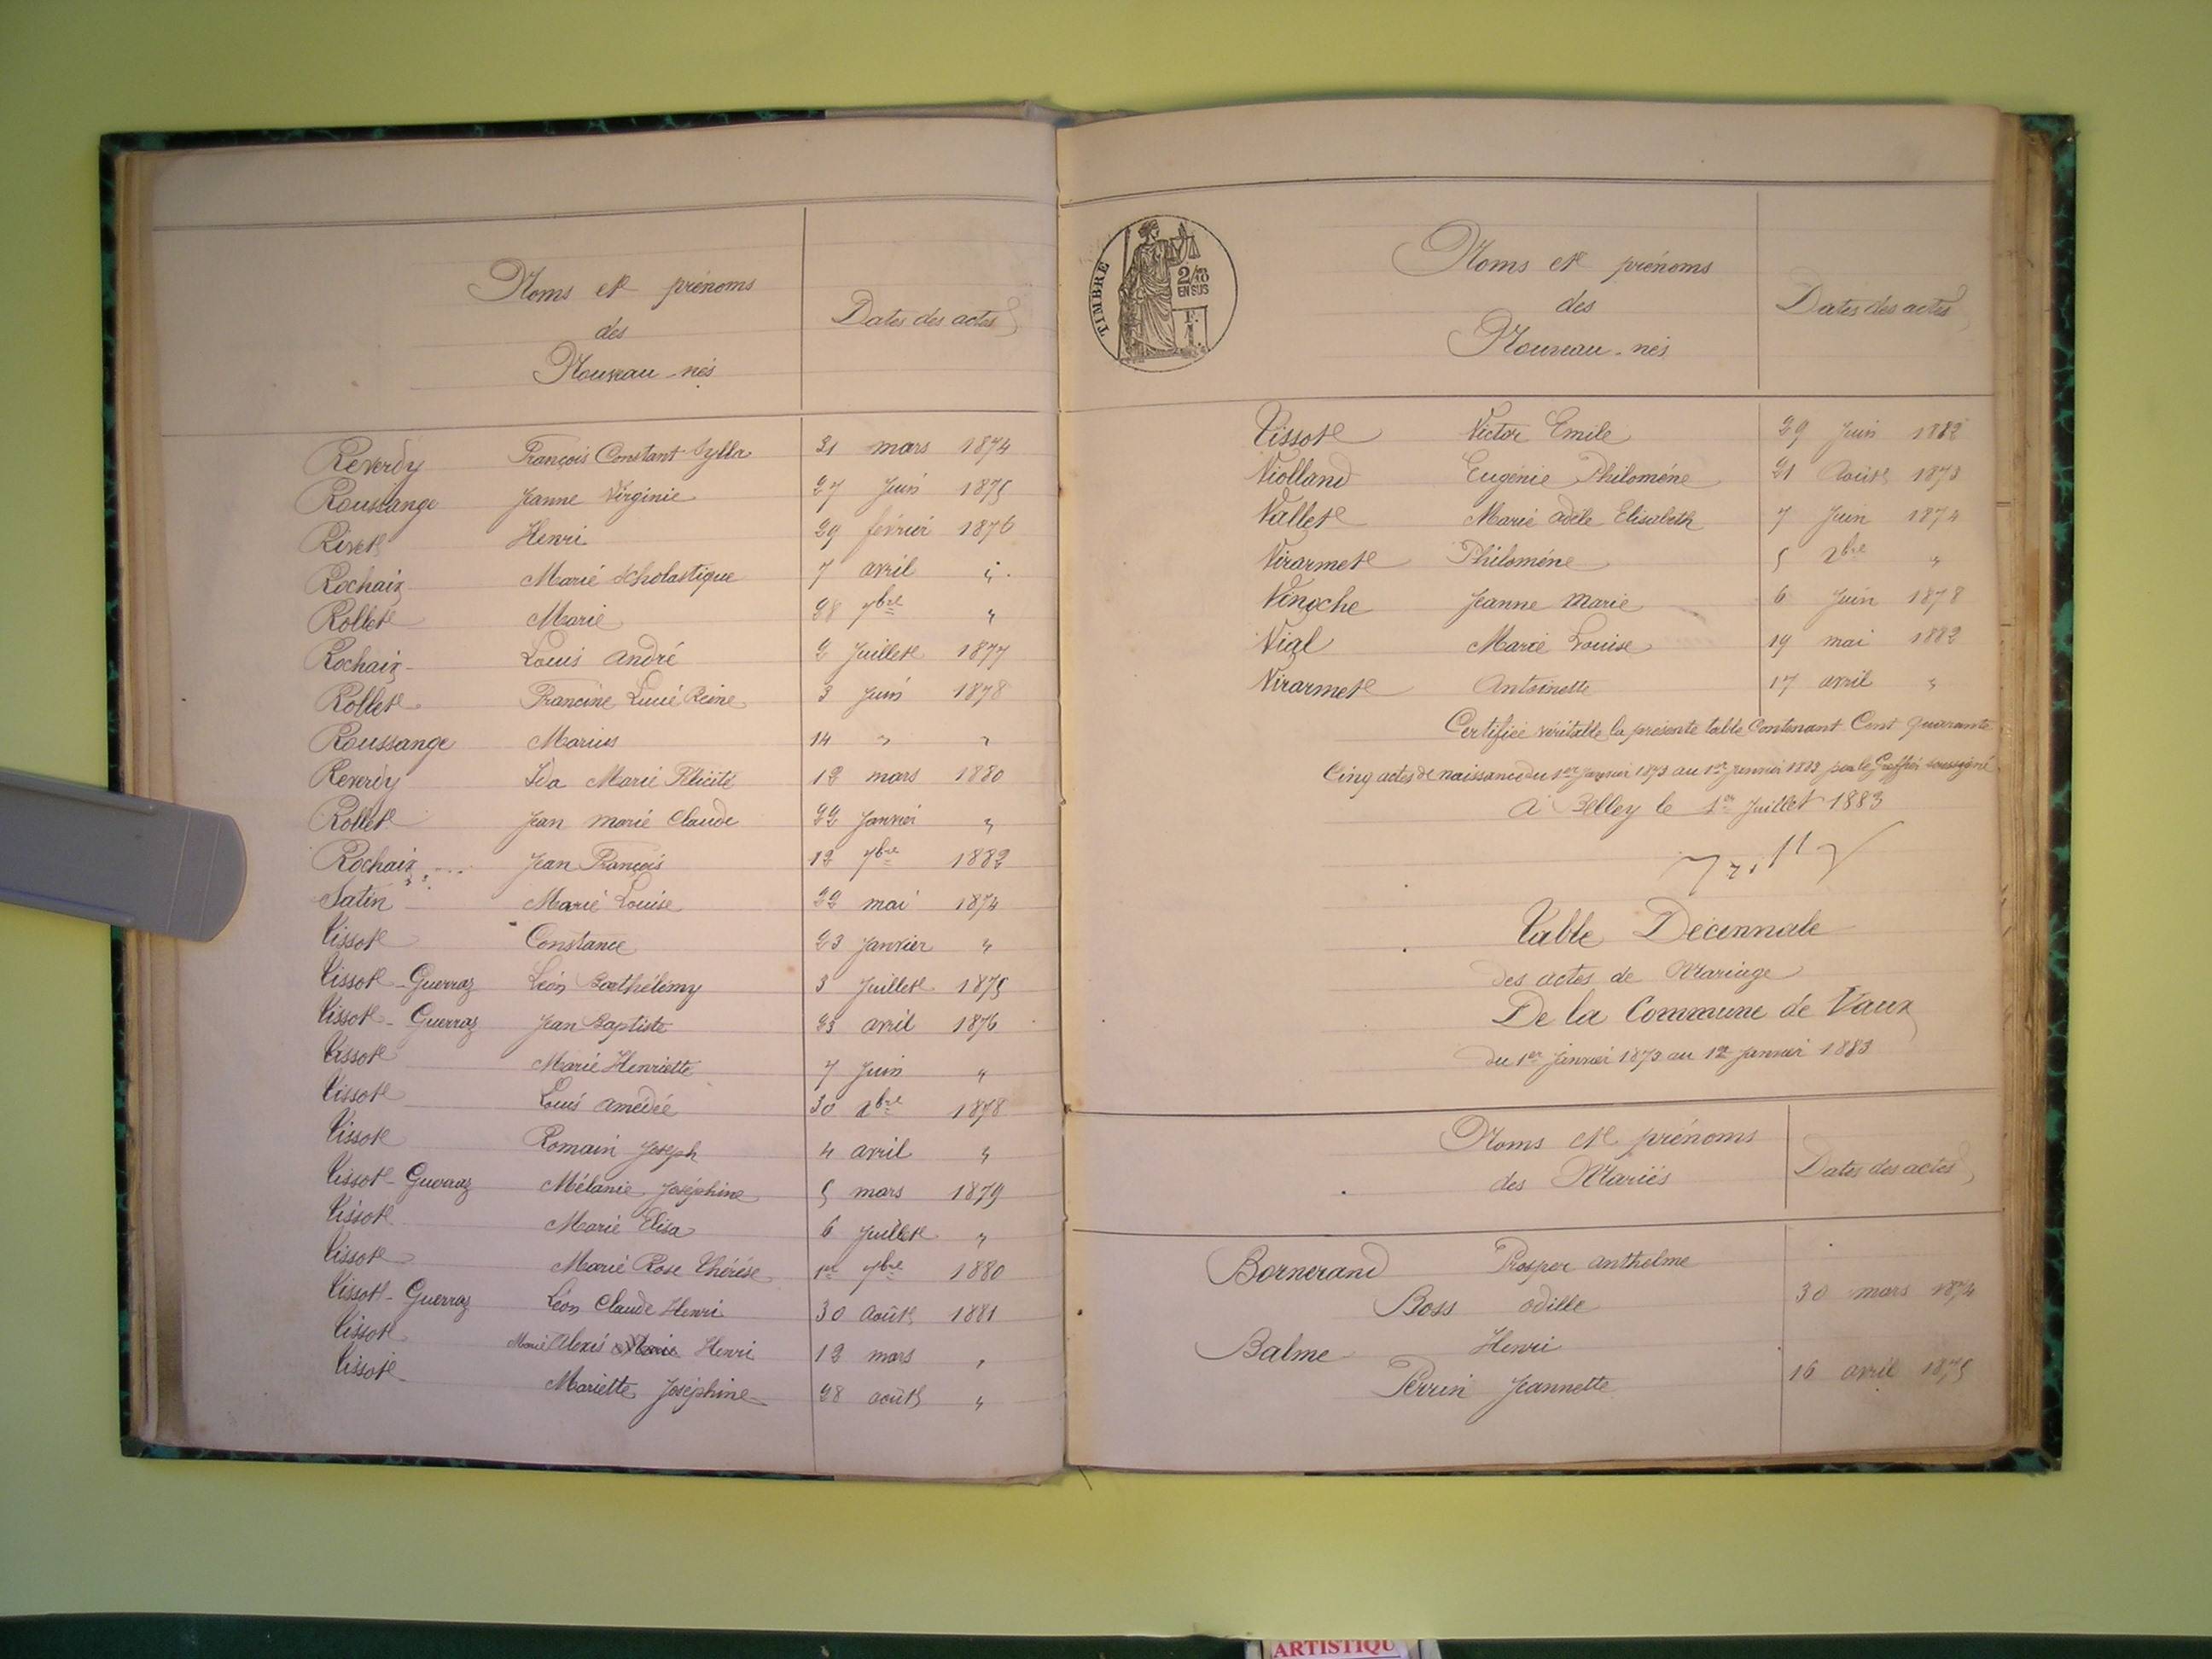 Noms et prénoms
des
Nouveau-nés
Dates des actes
Reverdy François Constant Sylla 31 mars 1874
Roussange Jeanne Virginie 27 Juin 1875
Rivet Henri 29 février 1876
Rochaix Marie Scholastique 7 avril "
Rollet Marie 28 7bre "
Rochaix Louis André 2 Juillet 1877
Rollet Francine Lucie Reine 3 Juin 1878
Roussange Marius 14 " "
Reverdy Ida Marie Félicité 12 mars 1880
Rollet Jean Marie Claude 22 Janvier "
Rochaix Jean François 12 7bre 1882
Satin Marie Louise 22 mai 1874
Tissot Constance 23 Janvier "
Tissot-Guerraz Léon Barthélémy 3 Juillet 1875
Tissot-Guerraz Jean Baptiste 23 avril 1876
Tissot Marie Henriette 7 Juin "
Tissot Louis Amédée 30 xbre 1878
Tissot Romain Joseph 4 avril "
Tissot-Guerraz Mélanie Joséphine 5 mars 1879
Tissot Marie Elisa 6 Juillet "
Tissot Marie Rose Thérèse 1er 7bre 1880
Tissot-Guerraz Léon Claude Henri 30 août 1881
Tissot Marie Alexis Henri 12 mars "
Tissot Mariette Joséphine 28 août "
TIMBRE
2/10
EN SUS
F.
1.
Noms et prénoms
des
Nouveau-nés
Dates des actes
Tissot Victor Emile 29 Juin 1882
Violland Eugénie Philomène 21 Août 1873
Vallet Marie Adèle Elisabeth 7 Juin 1874
Virarmet Philomène 5 xbre "
Vinoche Jeanne Marie 6 Juin 1878
Vial Marie Louise 19 mai 1882
Virarmet Antoinette 17 avril "
Certifiée véritable la présente table Contenant Cent quarante
Cinq actes de naissance du 1er Janvier 1873 au 1er Janvier 1883 par le Greffier soussigné
à Belley le 1er Juillet 1883
Table Décennale
des actes de Mariage
De la Commune de Vaux
du 1er Janvier 1873 au 1er Janvier 1883
Noms et prénoms
des Mariés
Dates des actes
Bornerand Prosper Anthelme
Boss Odille 30 mars 1874
Balme Henri
Perrin Jeannette 16 avril 1875
ARTISTIQU